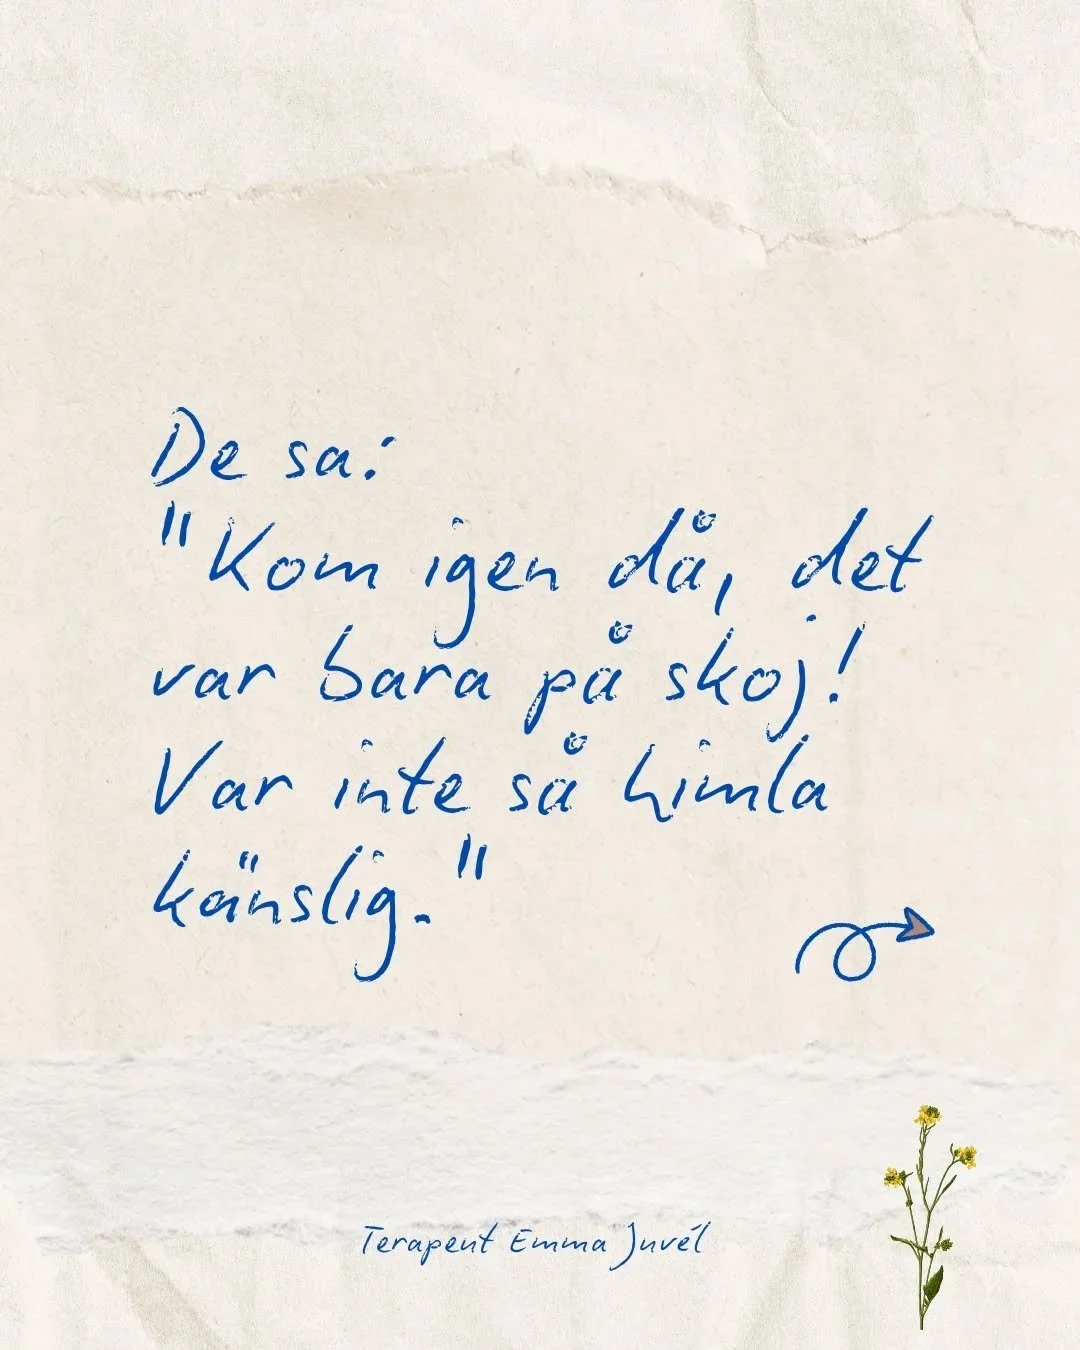 De sa:
"Kom igen då, det
var bara på skoj!
Var inte så himla
känslig."
Terapeut Emma Juvél